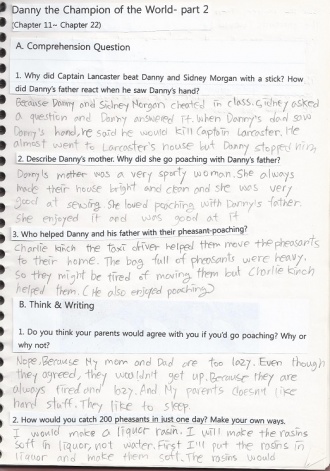 Danny the Champion of the World- part 2
(Chapter 11~ Chapter 22)
A. Comprehension Question
1. Why did Captain Lancaster beat Danny and Sidney Morgan with a stick? How
did Danny's father react when he saw Danny's hand?
Because Danny and Sidney Morgan cheated in class. Sidney asked
a question and Danny answered it. When Danny's dad saw
Danny's hand, he said he would kill Captain Lancaster. He
almost went to Lancaster's house but Danny stopped him.
2. Describe Danny's mother. Why did she go poaching with Danny's father?
Danny's mother was a very sporty woman. She always
made their house bright and clean and she was very
good at sewing. She loved poaching with Danny's father.
She enjoyed it and was good at it
3. Who helped Danny and his father with their pheasant-poaching?
Charlie kinch the taxi driver helped them move the pheasants
to their home. The bag full of pheasants were heavy.
So they might be tired of moving them but Charlie kinch
helped them. (He also enjoyed poaching)
B. Think & Writing
1. Do you think your parents would agree with you if you'd go poaching? Why or
why not?
Nope. Because My mom and Dad are too lazy. Even though
they agreed, they wouldn't get up. Because they are
always tired and lazy. And My parents doesn't like
hard stuff. They like to sleep.
2. How would you catch 200 pheasants in just one day? Make your own ways.
I would make a liquor rasin. I will make the rasins
soft in liquor, not water. First I'll put the rasins in
liquor and make them soft. The rasins would